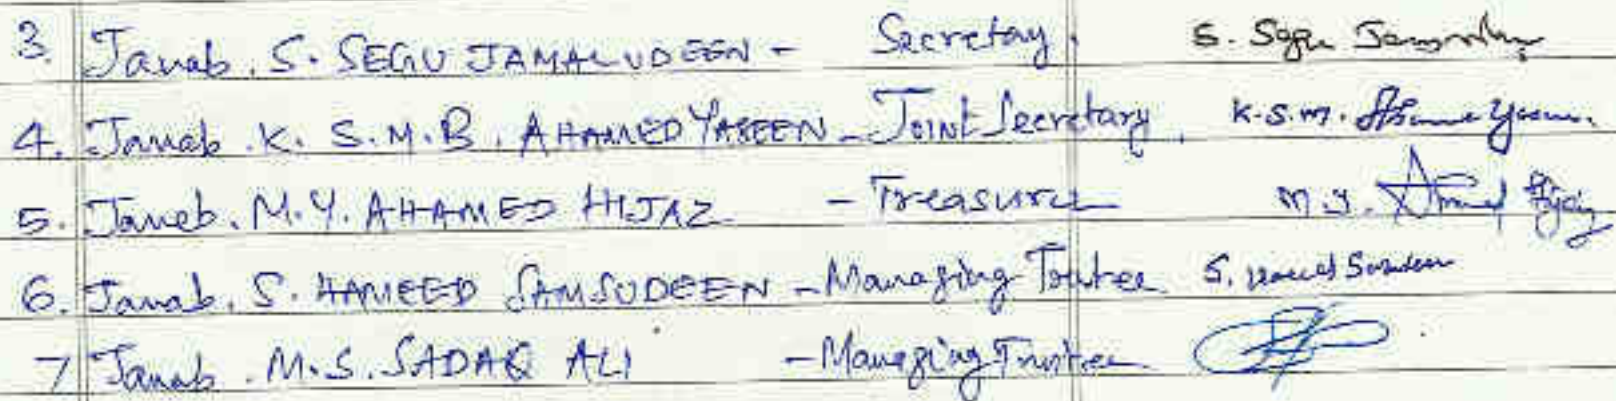 3. Janab. S. SEGU JAMALUDEEN - Secretary. S. Segu
4. Janab. K. S.M.B. AHAMED YASEEN - Joint Secretary. K.S.M.
5. Janab. M.Y. AHAMED HIJAZ - Treasurer M.Y. Ahmed Hijaz
6. Janab. S. HAMEED SAMSUDEEN - Managing Trustee S.
7 Janab. M.S. SADAQ ALI - Managing Trustee